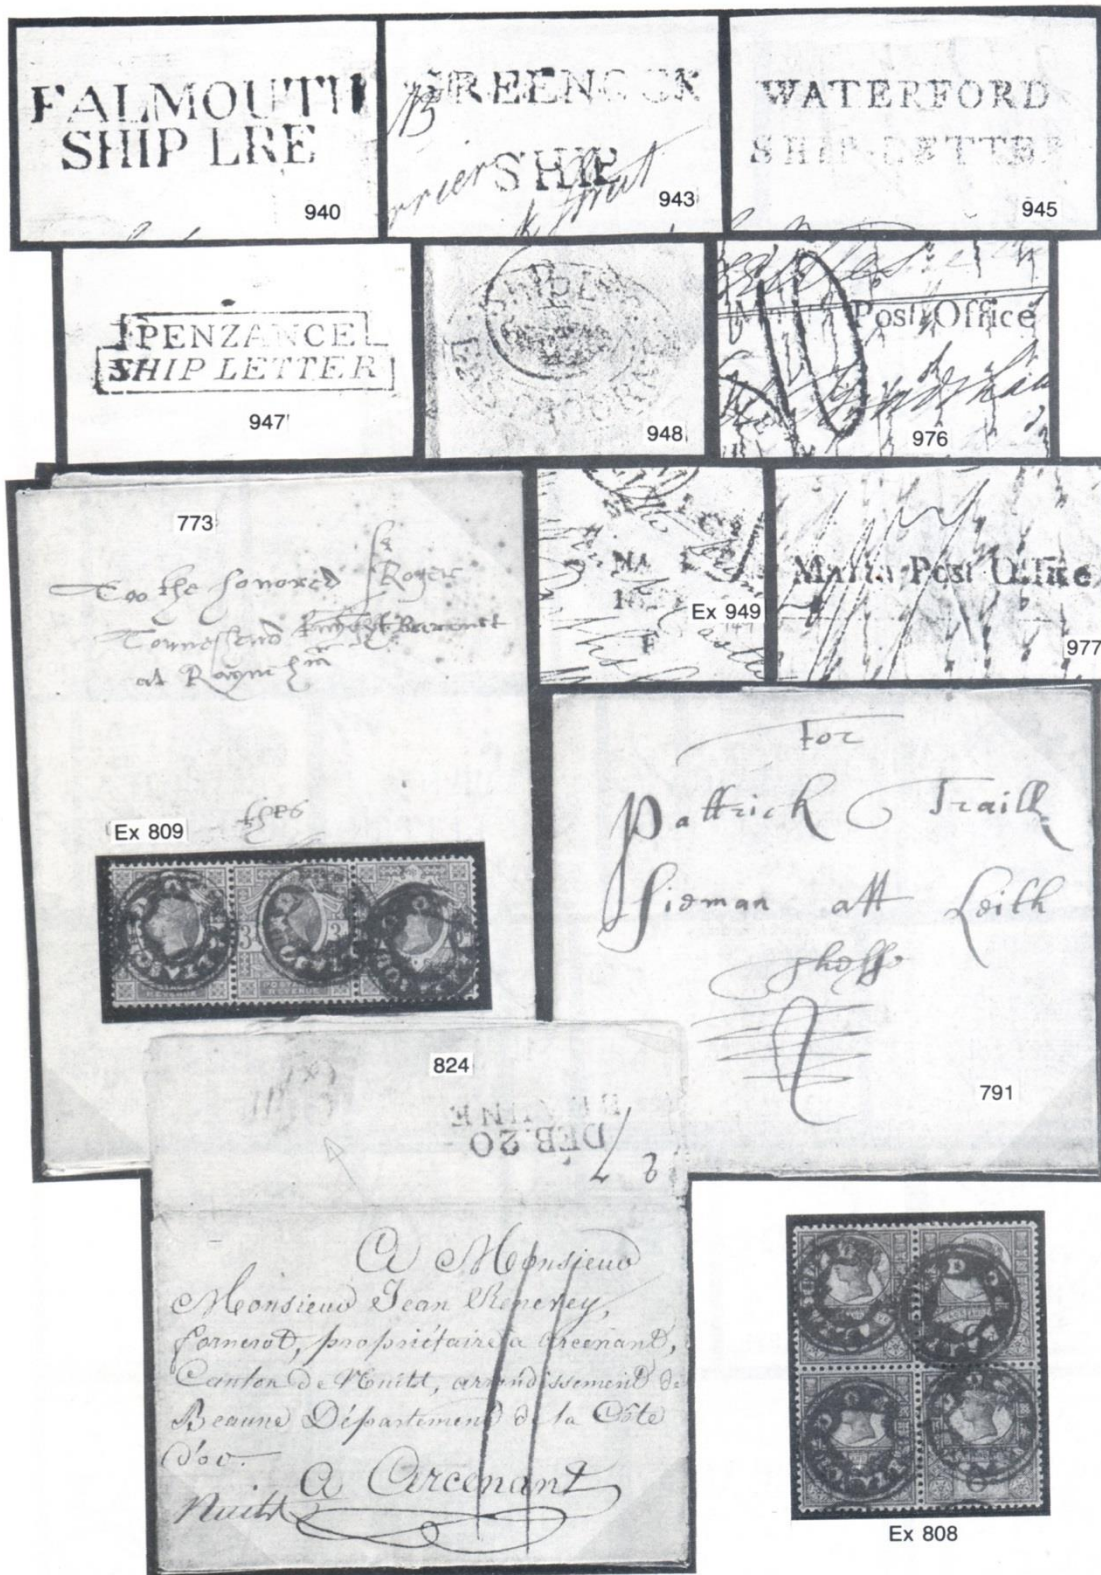 FALMOUTH
SHIP LRE
940
GREENOCK
SHIP
943
WATERFORD
SHIP-LETTER
945
PENZANCE
SHIP LETTER
947
948
Post Office
976
773
Too the honored Sr Roger
Towneshend
at
thes
Ex 949
Malta Post Office
977
For
Pattrick Traill
att Leith
791
Ex 809
824
DEB.20
BEAUNE
A Monsieur
Monsieur Jean Renevey,
fornerot, propriétaire a arcenant,
Canton de Nuits, arrondissement de
Beaune Département de la Côte
d'or.
A Arcenant
Nuits
Ex 808